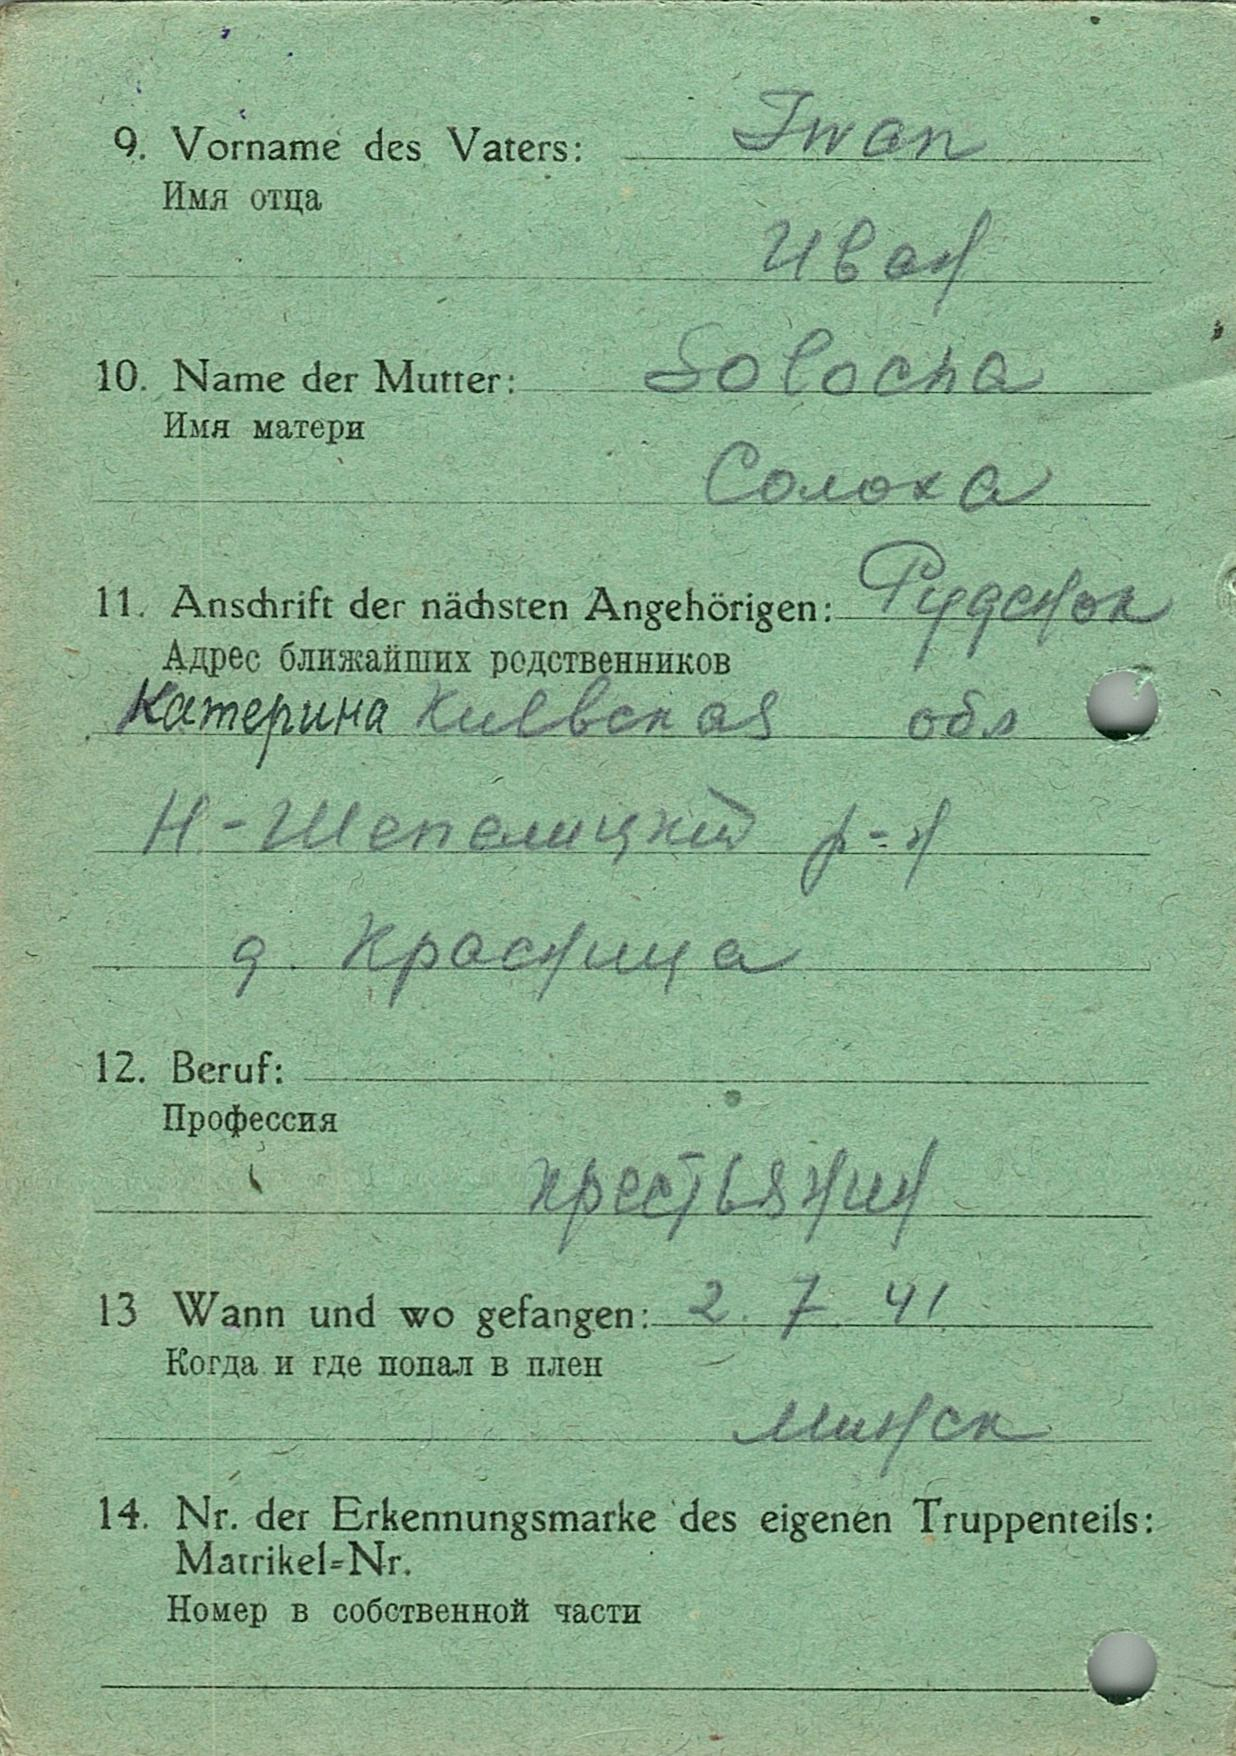 9. Vorname des Vaters: Iwan
Имя отца
Иван
10. Name der Mutter: Solocha
Имя матери
Солоха
11. Anschrift der nächsten Angehörigen: Руденок
Адрес ближайших родственников
Катерина Киевская обл
Н-Шепелицкий р-н
д. Красница
12. Beruf:
Профессия
крестьянин
13 Wann und wo gefangen: 2. 7. 41
Когда и где попал в плен
Минск
14. Nr. der Erkennungsmarke des eigenen Truppenteils:
Matrikel=Nr.
Номер в собственной части